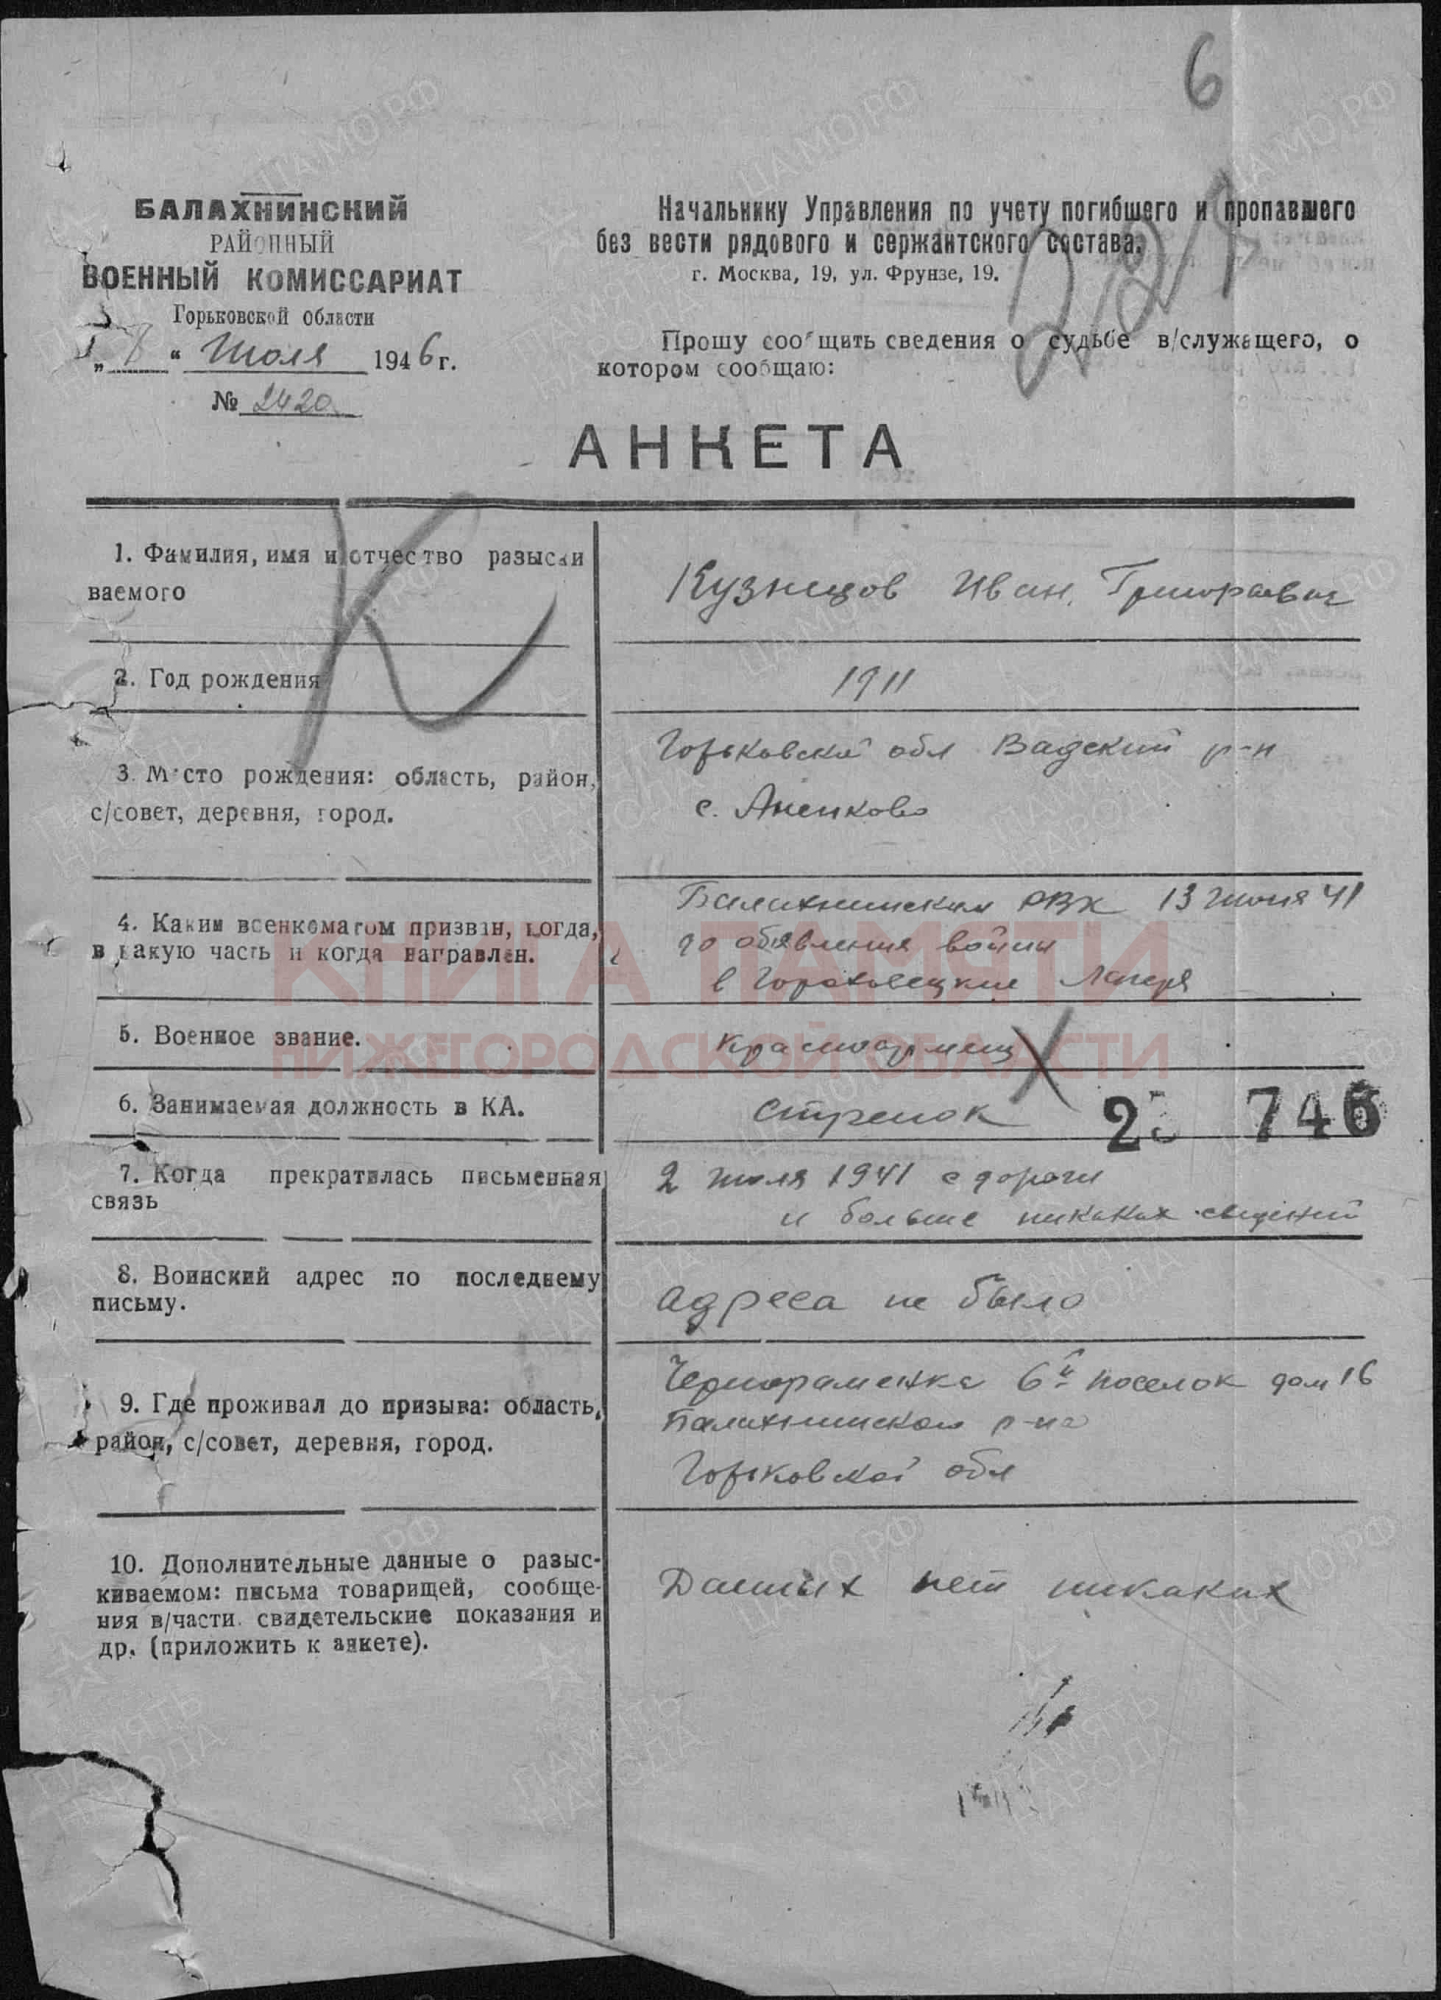 6
БАЛАХНИНСКИЙ
РАЙОННЫЙ
ВОЕННЫЙ КОМИССАРИАТ
Горьковской области
„ 8 “ Июля 1946 г.
№ 2420
Начальнику Управления по учету погибшего и пропавшего
без вести рядового и сержантского состава.
г. Москва, 19, ул. Фрунзе, 19.
Прошу сообщить сведения о судьбе в/служащего, о
котором сообщаю:
АНКЕТА
1. Фамилия, имя и отчество разыски
ваемого
Кузнецов Иван Григорьевич
2. Год рождения
1911
3. Место рождения: область, район,
с/совет, деревня, город.
Горьковской обл Вадский р-н
с. Аненково
4. Каким военкоматом призван, когда,
в какую часть и когда направлен.
Балахнинским РВК 13 июня 41
до обявления войны
в Гороховецкие Лагеря
5. Военное звание.
Красноармеец
6. Занимаемая должность в КА.
стрелок
746
7. Когда прекратилась письменная
связь
2 июля 1941 с дороги
и больше никаких сведений
8. Воинский адрес по последнему
письму.
адреса не было
9. Где проживал до призыва: область,
район, с/совет, деревня, город.
Чернораменка 6й поселок дом 16
Балахнинского р-на
Горьковской обл
10. Дополнительные данные о разыс-
киваемом: письма товарищей, сообще-
ния в/части свидетельские показания и
др. (приложить к анкете).
Данных нет никаких
КНИГА ПАМЯТИ
НИЖЕГОРОДСКОЙ ОБЛАСТИ
ЦАМО.РФ
ПАМЯТЬ
НАРОДА